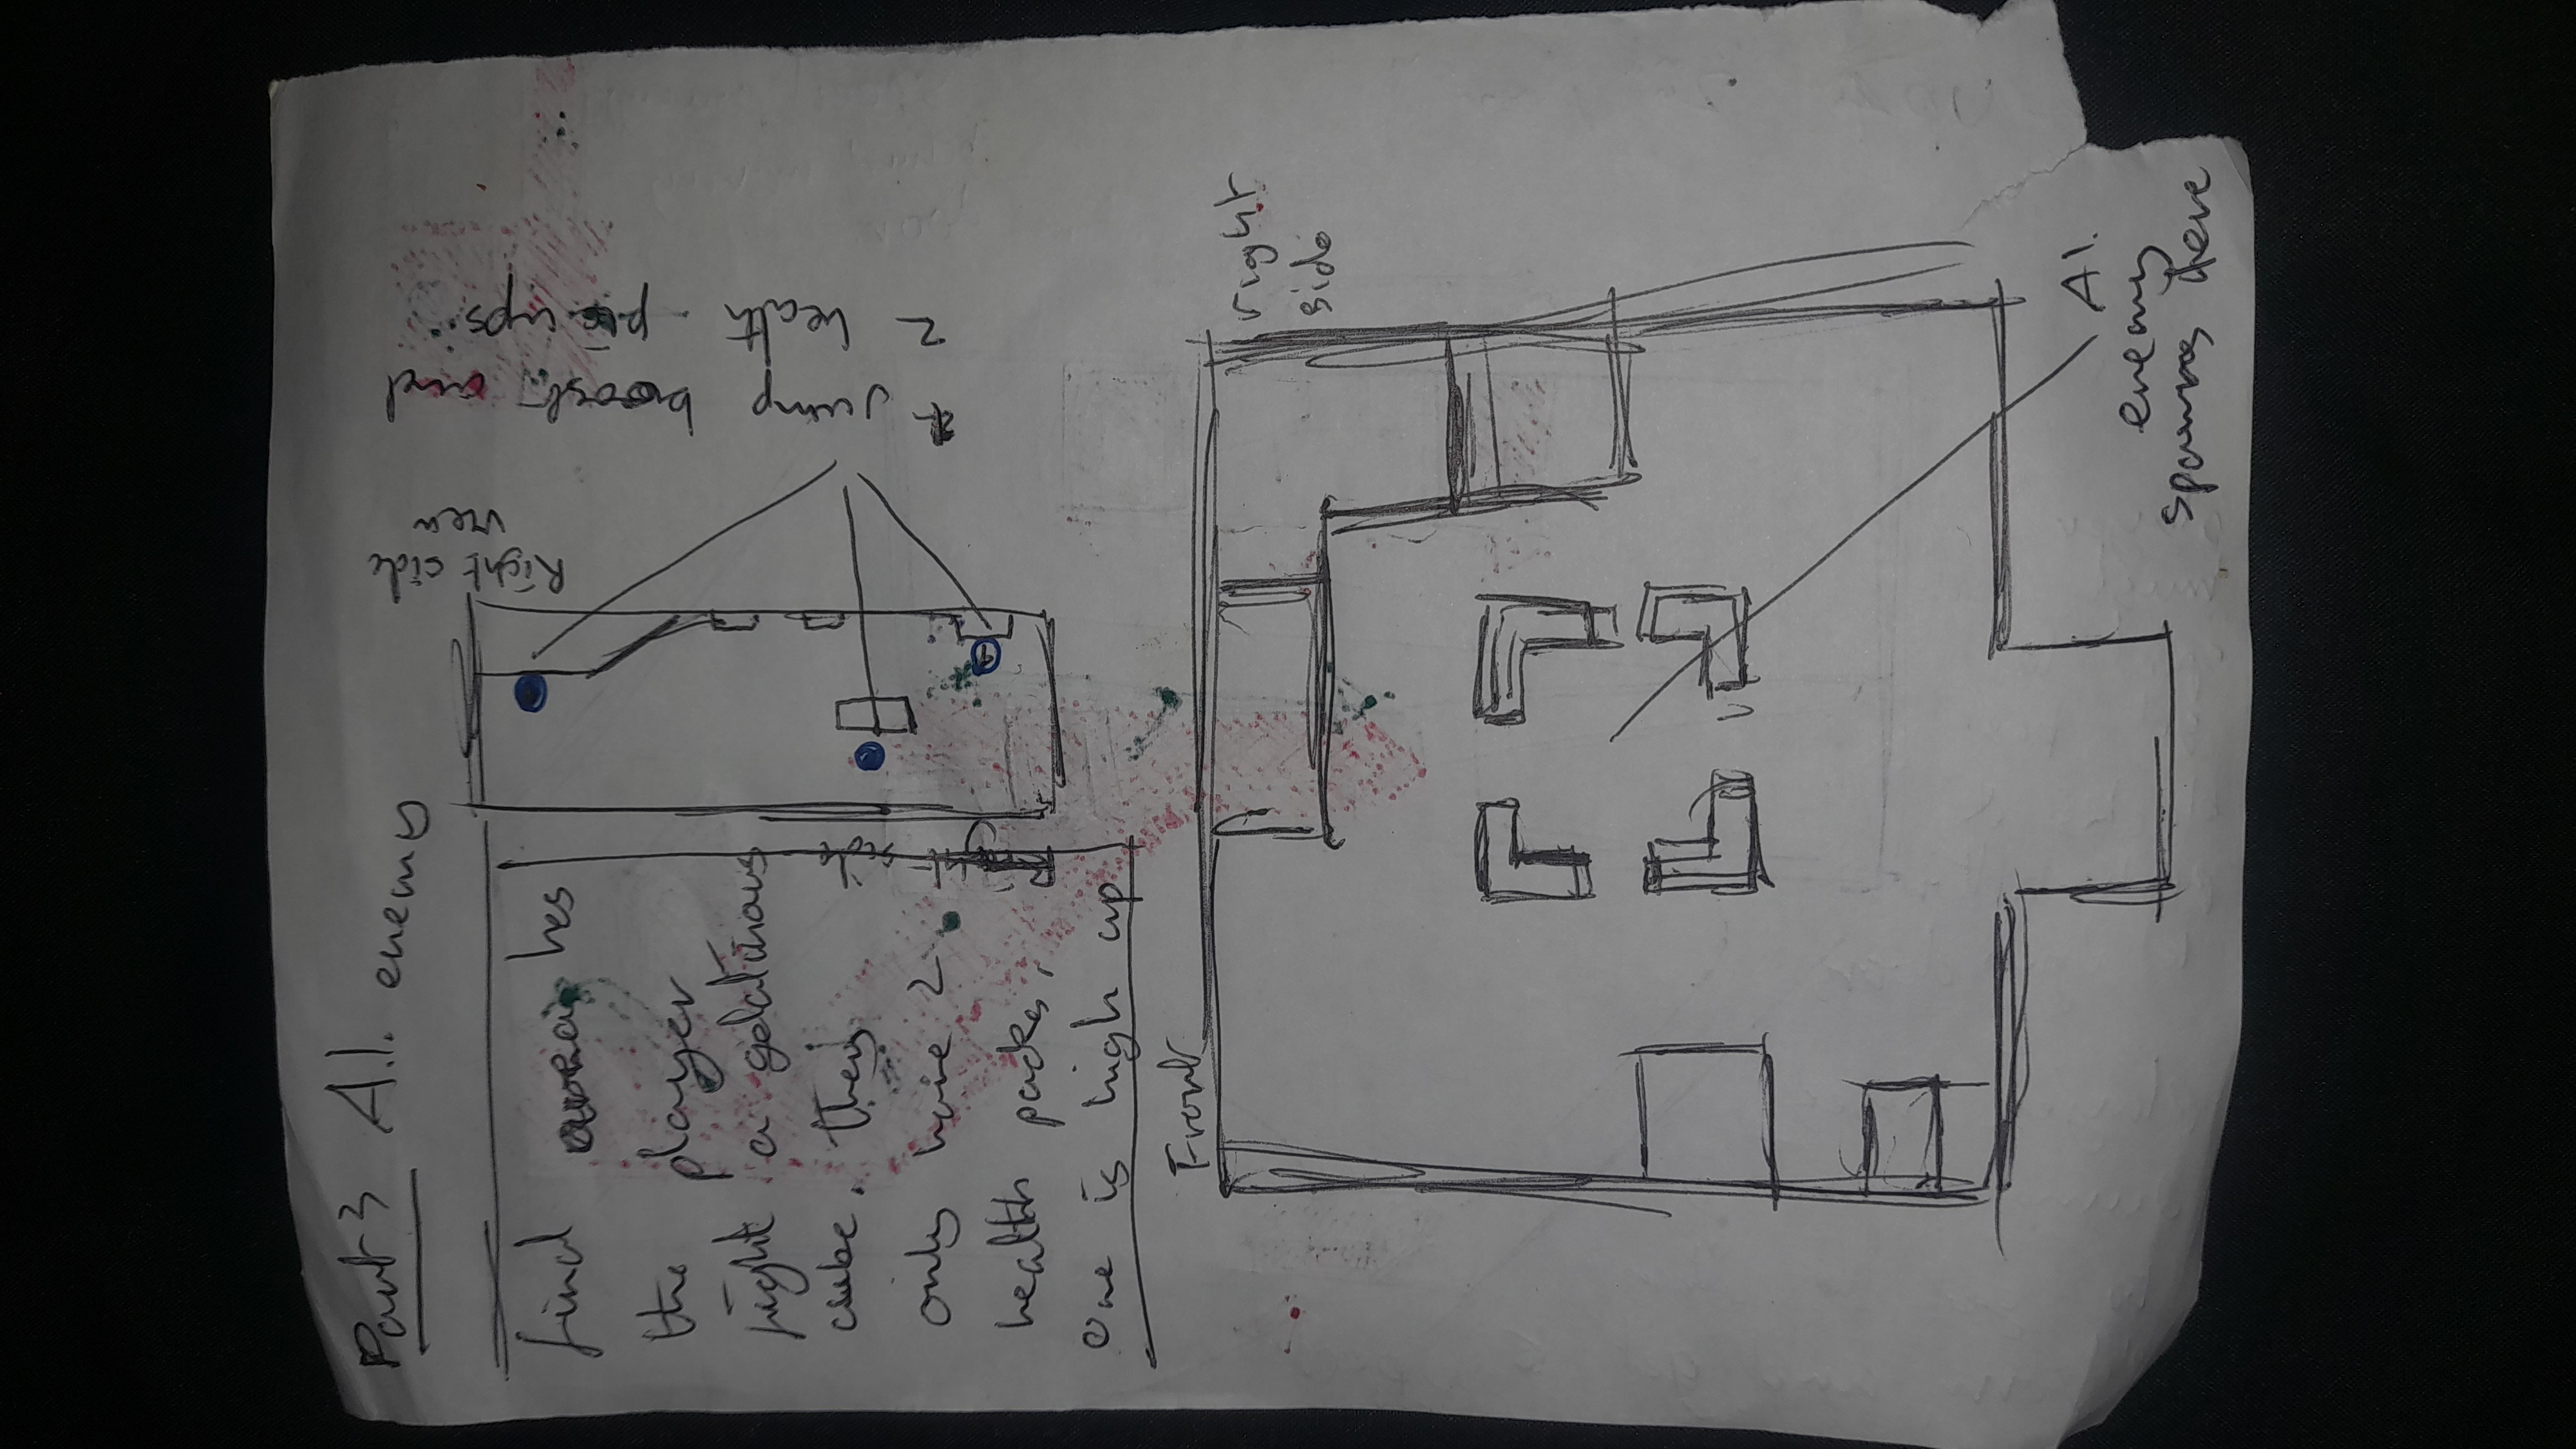 Part 3 A.I. enemy
final arena has
the player
fight a gelatinous
cube. They
only have 2
health packs,
one is high up
Right side
view
jump boost and
2 health pic ups.
Front
right
side
A.I.
enemy
spawns here